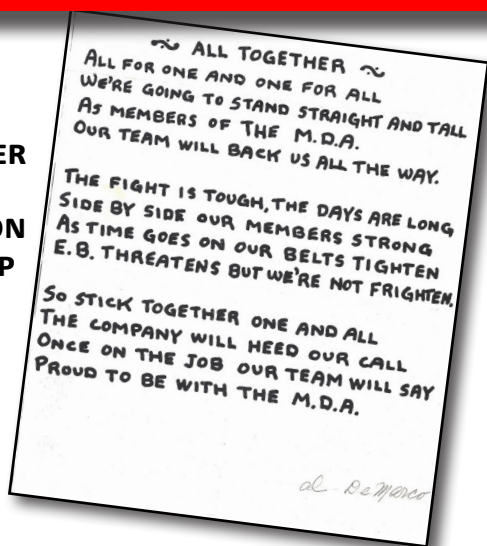 ER
ON
P
~ ALL TOGETHER ~
ALL FOR ONE AND ONE FOR ALL
WE'RE GOING TO STAND STRAIGHT AND TALL
AS MEMBERS OF THE M.D.A.
OUR TEAM WILL BACK US ALL THE WAY.
THE FIGHT IS TOUGH, THE DAYS ARE LONG
SIDE BY SIDE OUR MEMBERS STRONG
AS TIME GOES ON OUR BELTS TIGHTEN
E.B. THREATENS BUT WE'RE NOT FRIGHTEN.
SO STICK TOGETHER ONE AND ALL
THE COMPANY WILL HEED OUR CALL
ONCE ON THE JOB OUR TEAM WILL SAY
PROUD TO BE WITH THE M.D.A.
al DeMarco